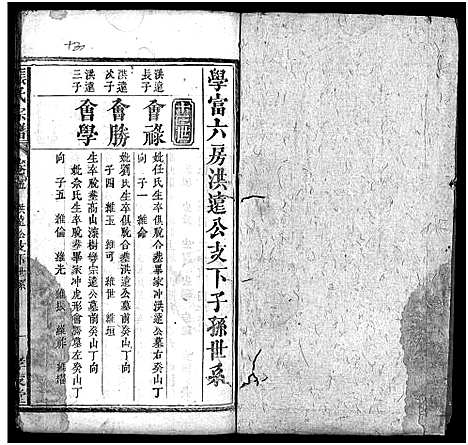 學富六房洪遠公支下子孫世系
洪遠長子
會祿
妣任氏生卒俱脫合葬畢家冲洪遠公墓右癸山丁向
子一 維侖
洪遠次子
會勝
妣劉氏生卒俱脫合葬洪遠公墓前癸山丁向
子四 維玉 維可 維世 維垣
洪遠三子
會學
生卒脫葬高山漆樹灣宗遠公墓前癸山丁向
妣余氏生卒脫葬畢家冲虎形會勝墓左癸山丁向
子五 維倫 維光 維振
張氏宗譜
洪遠公支下世系